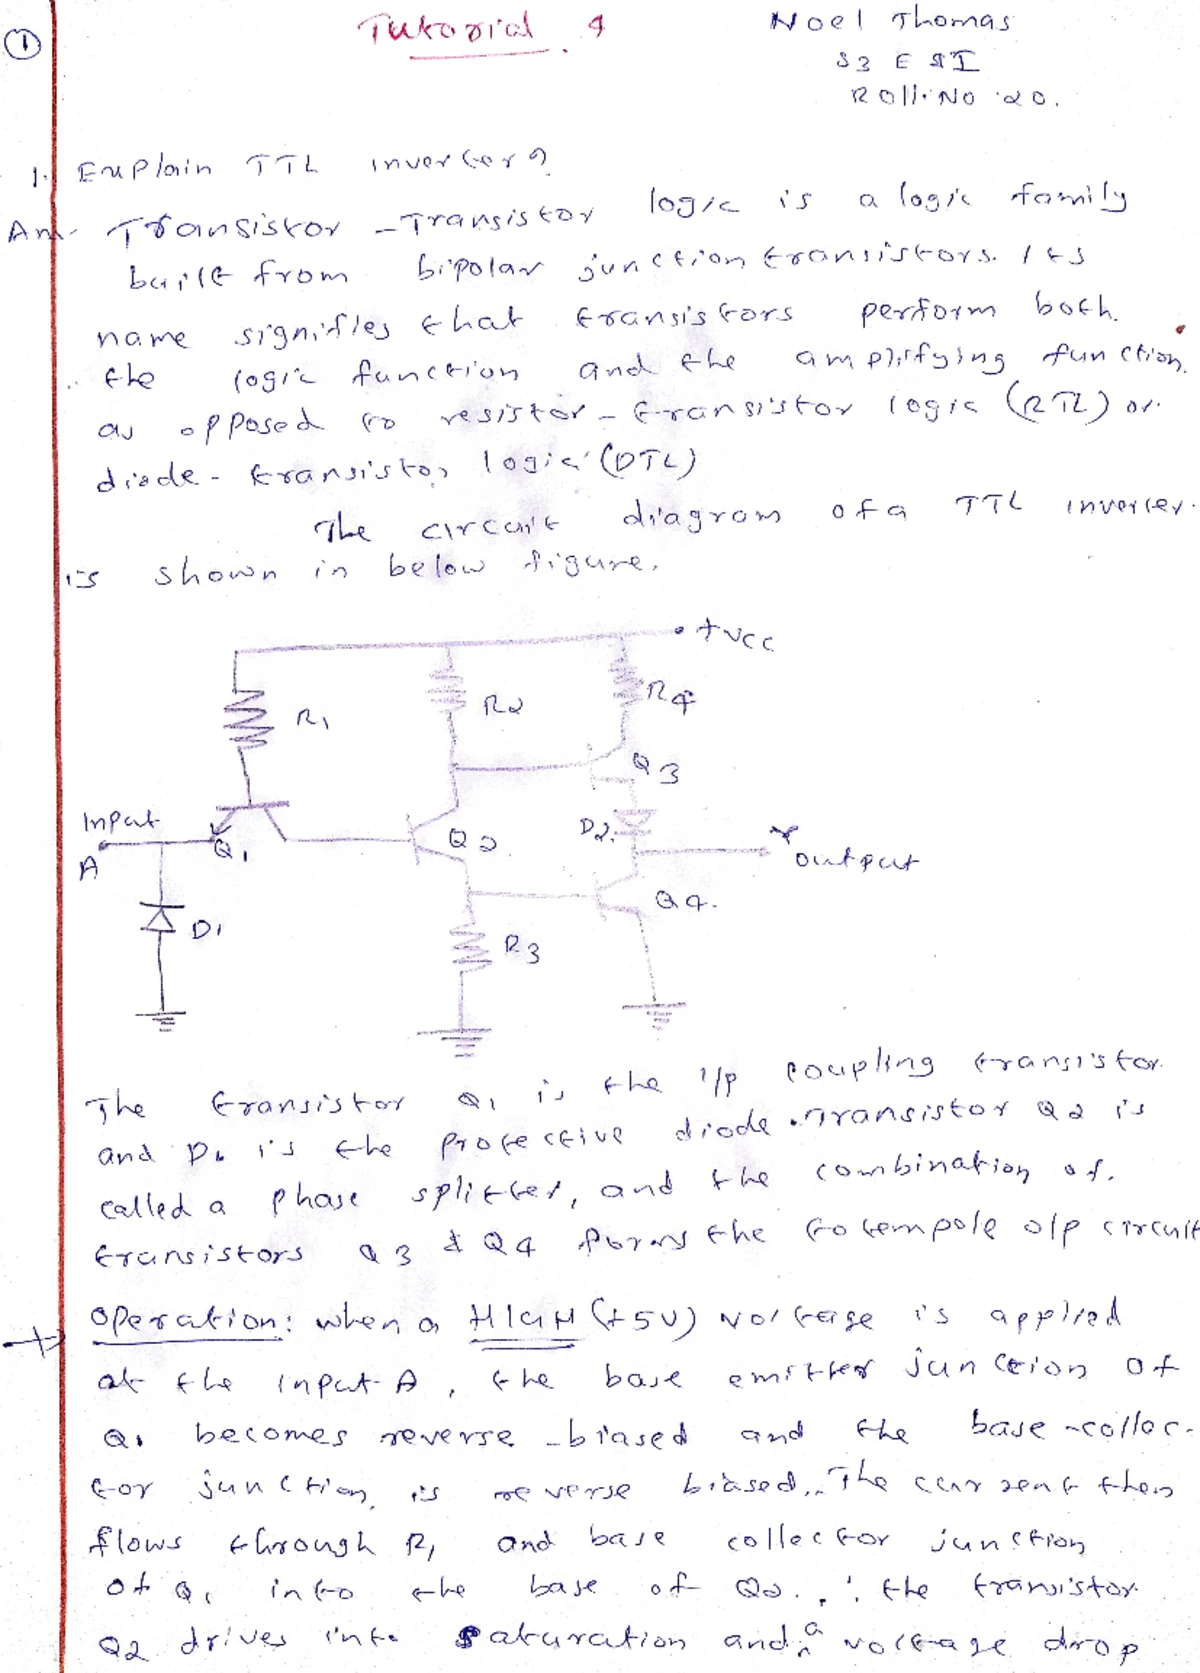 1
Tutorial 4
Noel Thomas
S3 E
Roll.No 20.
1. Explain TTL inverter?
Ans- Transistor-Transistor logic is a logic family
built from bipolar junction transistors. Its
name signifies that transistors perform both.
the logic function and the amplifying function.
as opposed to resistor-transistor logic (RTL) or.
diode-transistor logic (DTL)
The circuit diagram of a TTL inverter.
is shown in below figure.
+VCC
R1
R2
R4
Q3
Input
A
Q1
Q2
D2
Y
output
Q4.
D1
R3
The transistor Q1 is the i/p coupling transistor.
and D1 is the protective diode. Transistor Q2 is
called a phase splitter, and the combination of.
transistors Q3 & Q4 forms the totempole o/p circuit
Operation: when a HIGH (+5V) voltage is applied
at the input A, the base emitter junction of
Q1 becomes reverse-biased and the base-collec-
tor junction is reverse biased. The current then
flows through R1 and base collector junction
of Q1 into the base of Q2. ∴ the transistor
Q2 drives into saturation and a voltage drop